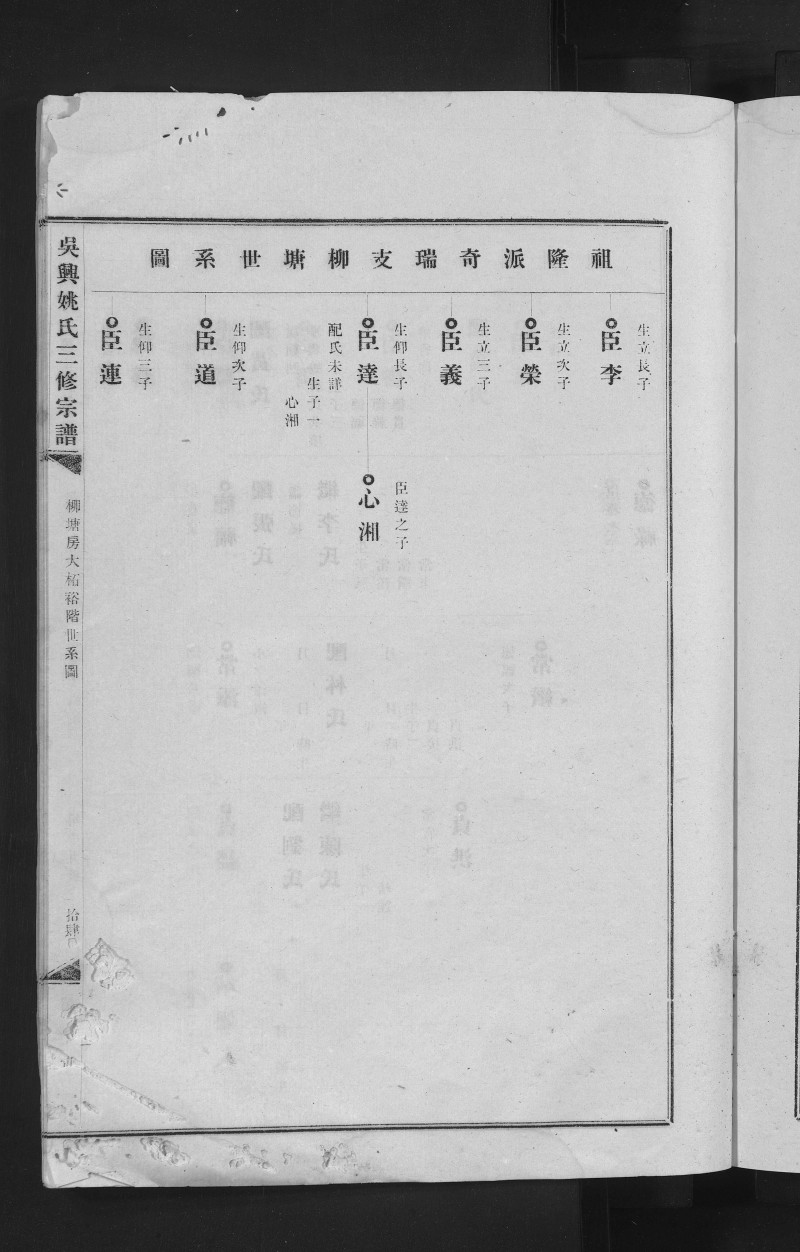 祖隆派奇瑞支柳塘世系圖
臣李
生立長子
臣榮
生立次子
臣義
生立三子
臣達
生仰長子
配氏未詳
生子一
心湘
臣道
生仰次子
臣連
生仰三子
心湘
臣達之子
吳興姚氏三修宗譜
柳塘房大柘裕階世系圖
拾肆